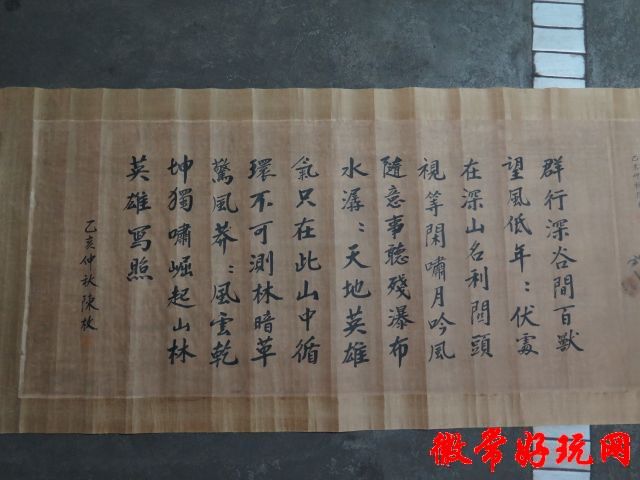 群行深谷間百獸
望風低年：伏處
在深山名利問頭
視等閑嘯月吟風
隨意事聽殘瀑布
水潺：天地英雄
氣只在此山中循
環不可測林暗草
驚風莽：風雲乾
坤獨嘯崛起山林
英雄寫照
乙亥仲秋陳枚
徽常好玩网